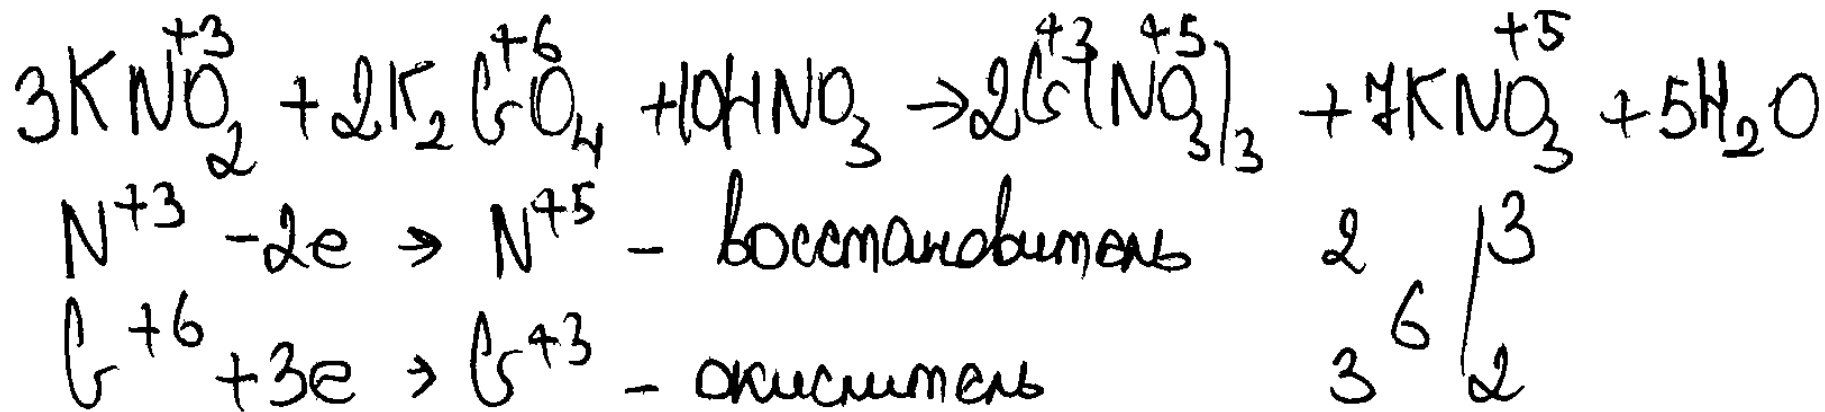 3KN⁺³O₂ + 2K₂Cr⁺⁶O₄ + 10HNO₃ → 2Cr⁺³(N⁺⁵O₃)₃ + 7KN⁺⁵O₃ + 5H₂O
N⁺³ -2e → N⁺⁵ - восстановитель 2 | 3
6
Cr⁺⁶ +3e → Cr⁺³ - окислитель 3 | 2